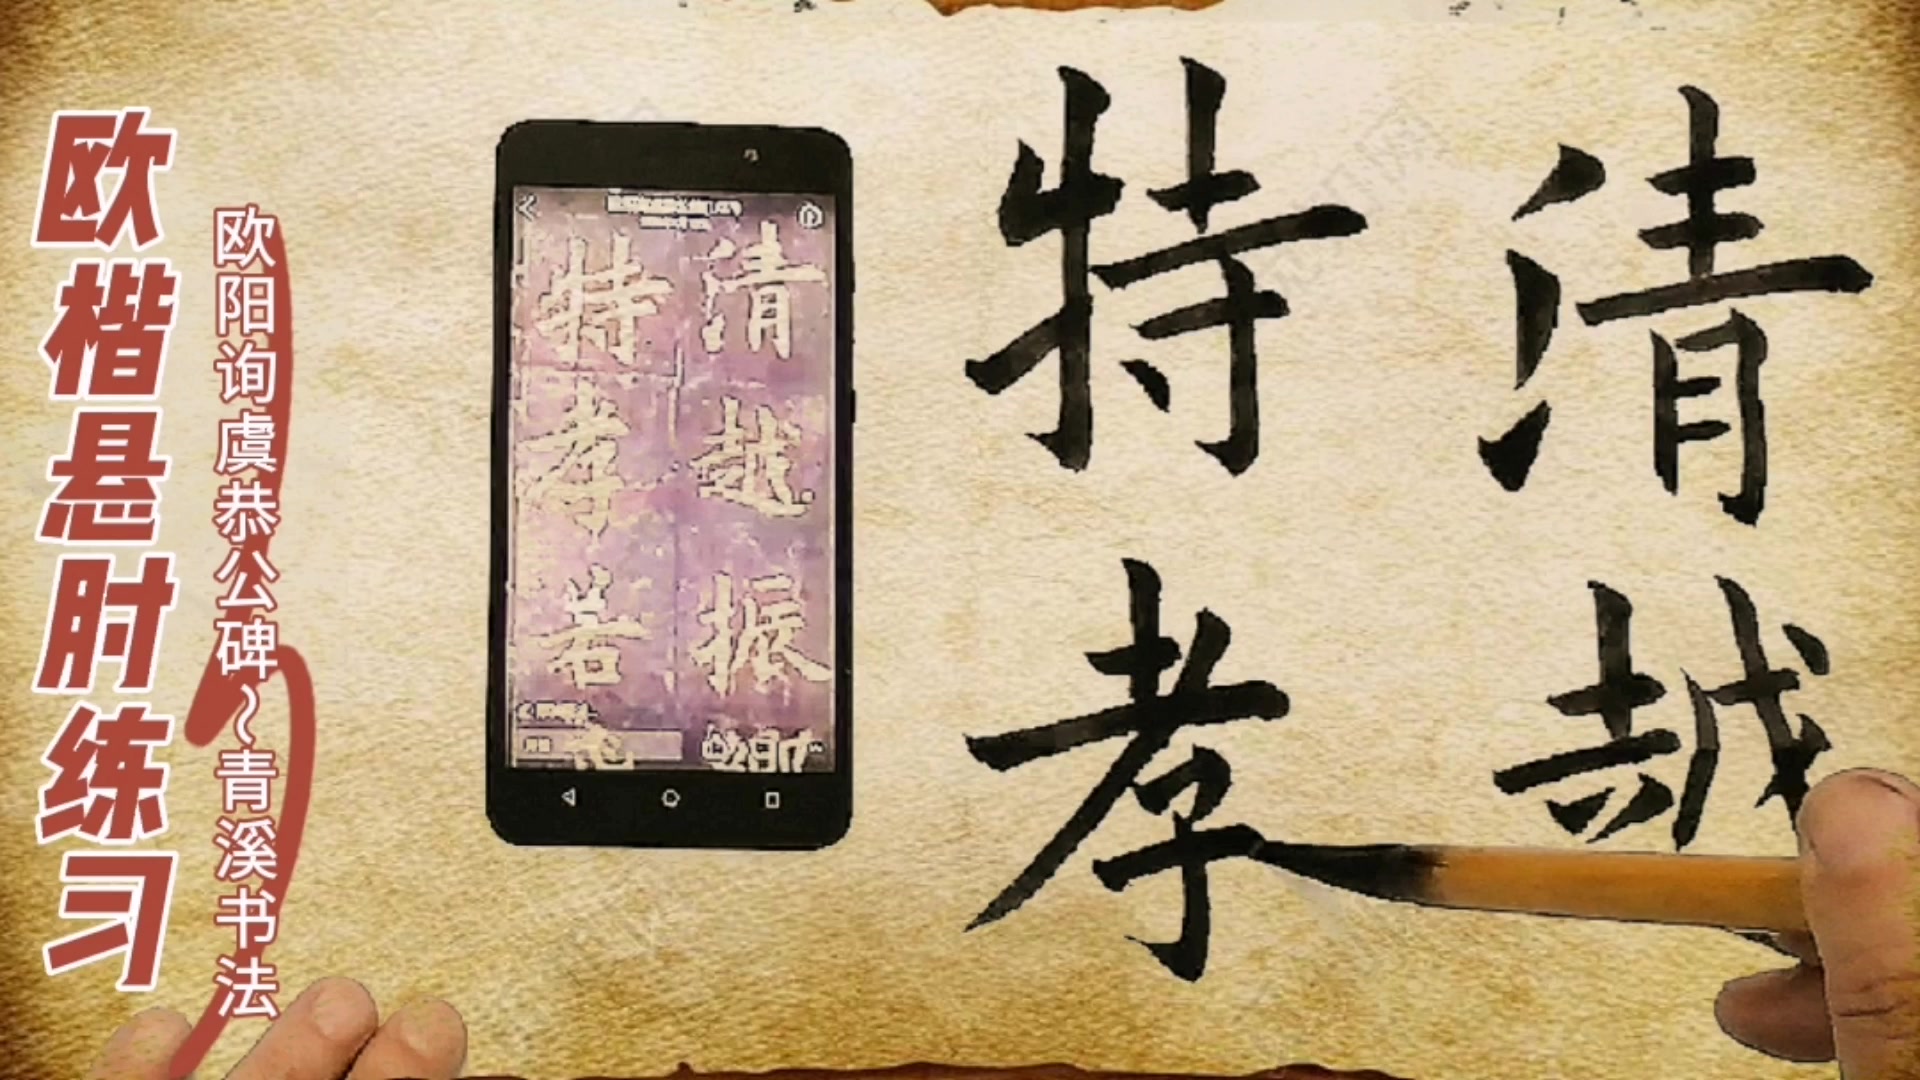 欧楷悬肘练习
欧阳询虞恭公碑～青溪书法
清越振
特孝若
清越
特孝